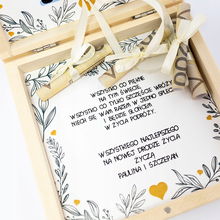 WSZYSTKO CO PIĘKNE
NA TYM ŚWIECIE,
WSZYSTKO CO TYLKO SZCZĘŚCIE WRÓŻY
NIECH SIĘ WAM RAZEM W JEDNO SPLECIE
I BĘDZIE SŁOŃCEM
W ŻYCIA PODRÓŻY.
WSZYSTKIEGO NAJLEPSZEGO
NA NOWEJ DRODZE ŻYCIA
ŻYCZĄ
PAULINA I SZCZEPAN